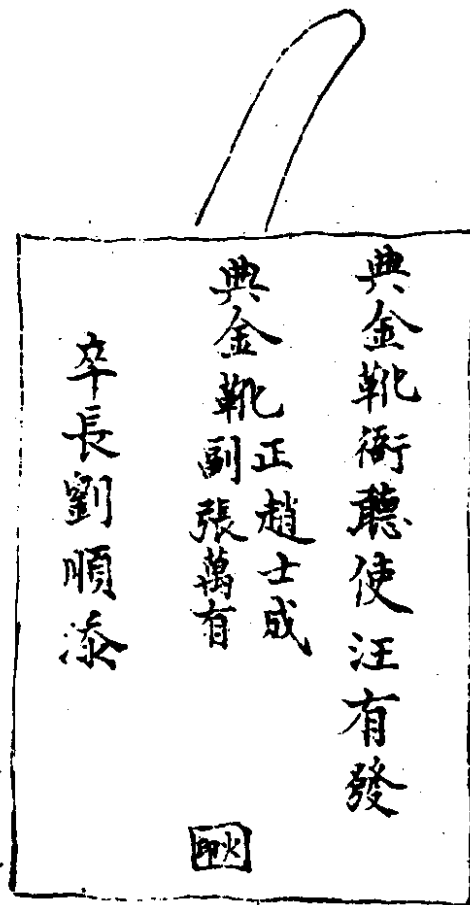 典金靴衙聽使汪有發
典金靴正趙士成
副張萬有
卒長劉順添
火印